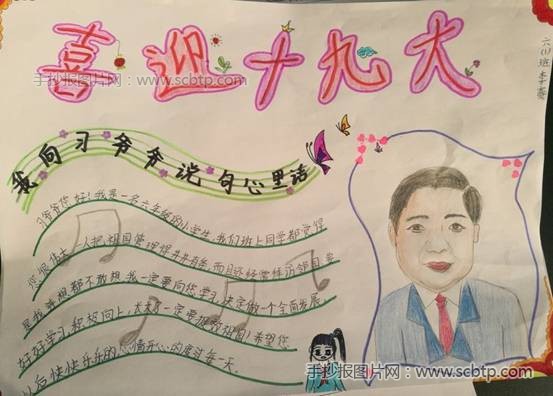 喜迎十九大
六(1)班
手抄报图片网：www.scbtp.com
我向习爷爷说句心里话
习爷爷你好！我是一名六年级的小学生，我们班上同学都觉得
您很伟大，一人把祖国管理得井井有条，而且还经常拜访邻国
是我 想都不敢想 我一定要向您学习 决定做一个全面发展
好好学习积极向上，长大一定要报效祖国！希望您
以后快快乐乐的 心情开心的度过每一天。
手抄报图片网：www.scbtp.com